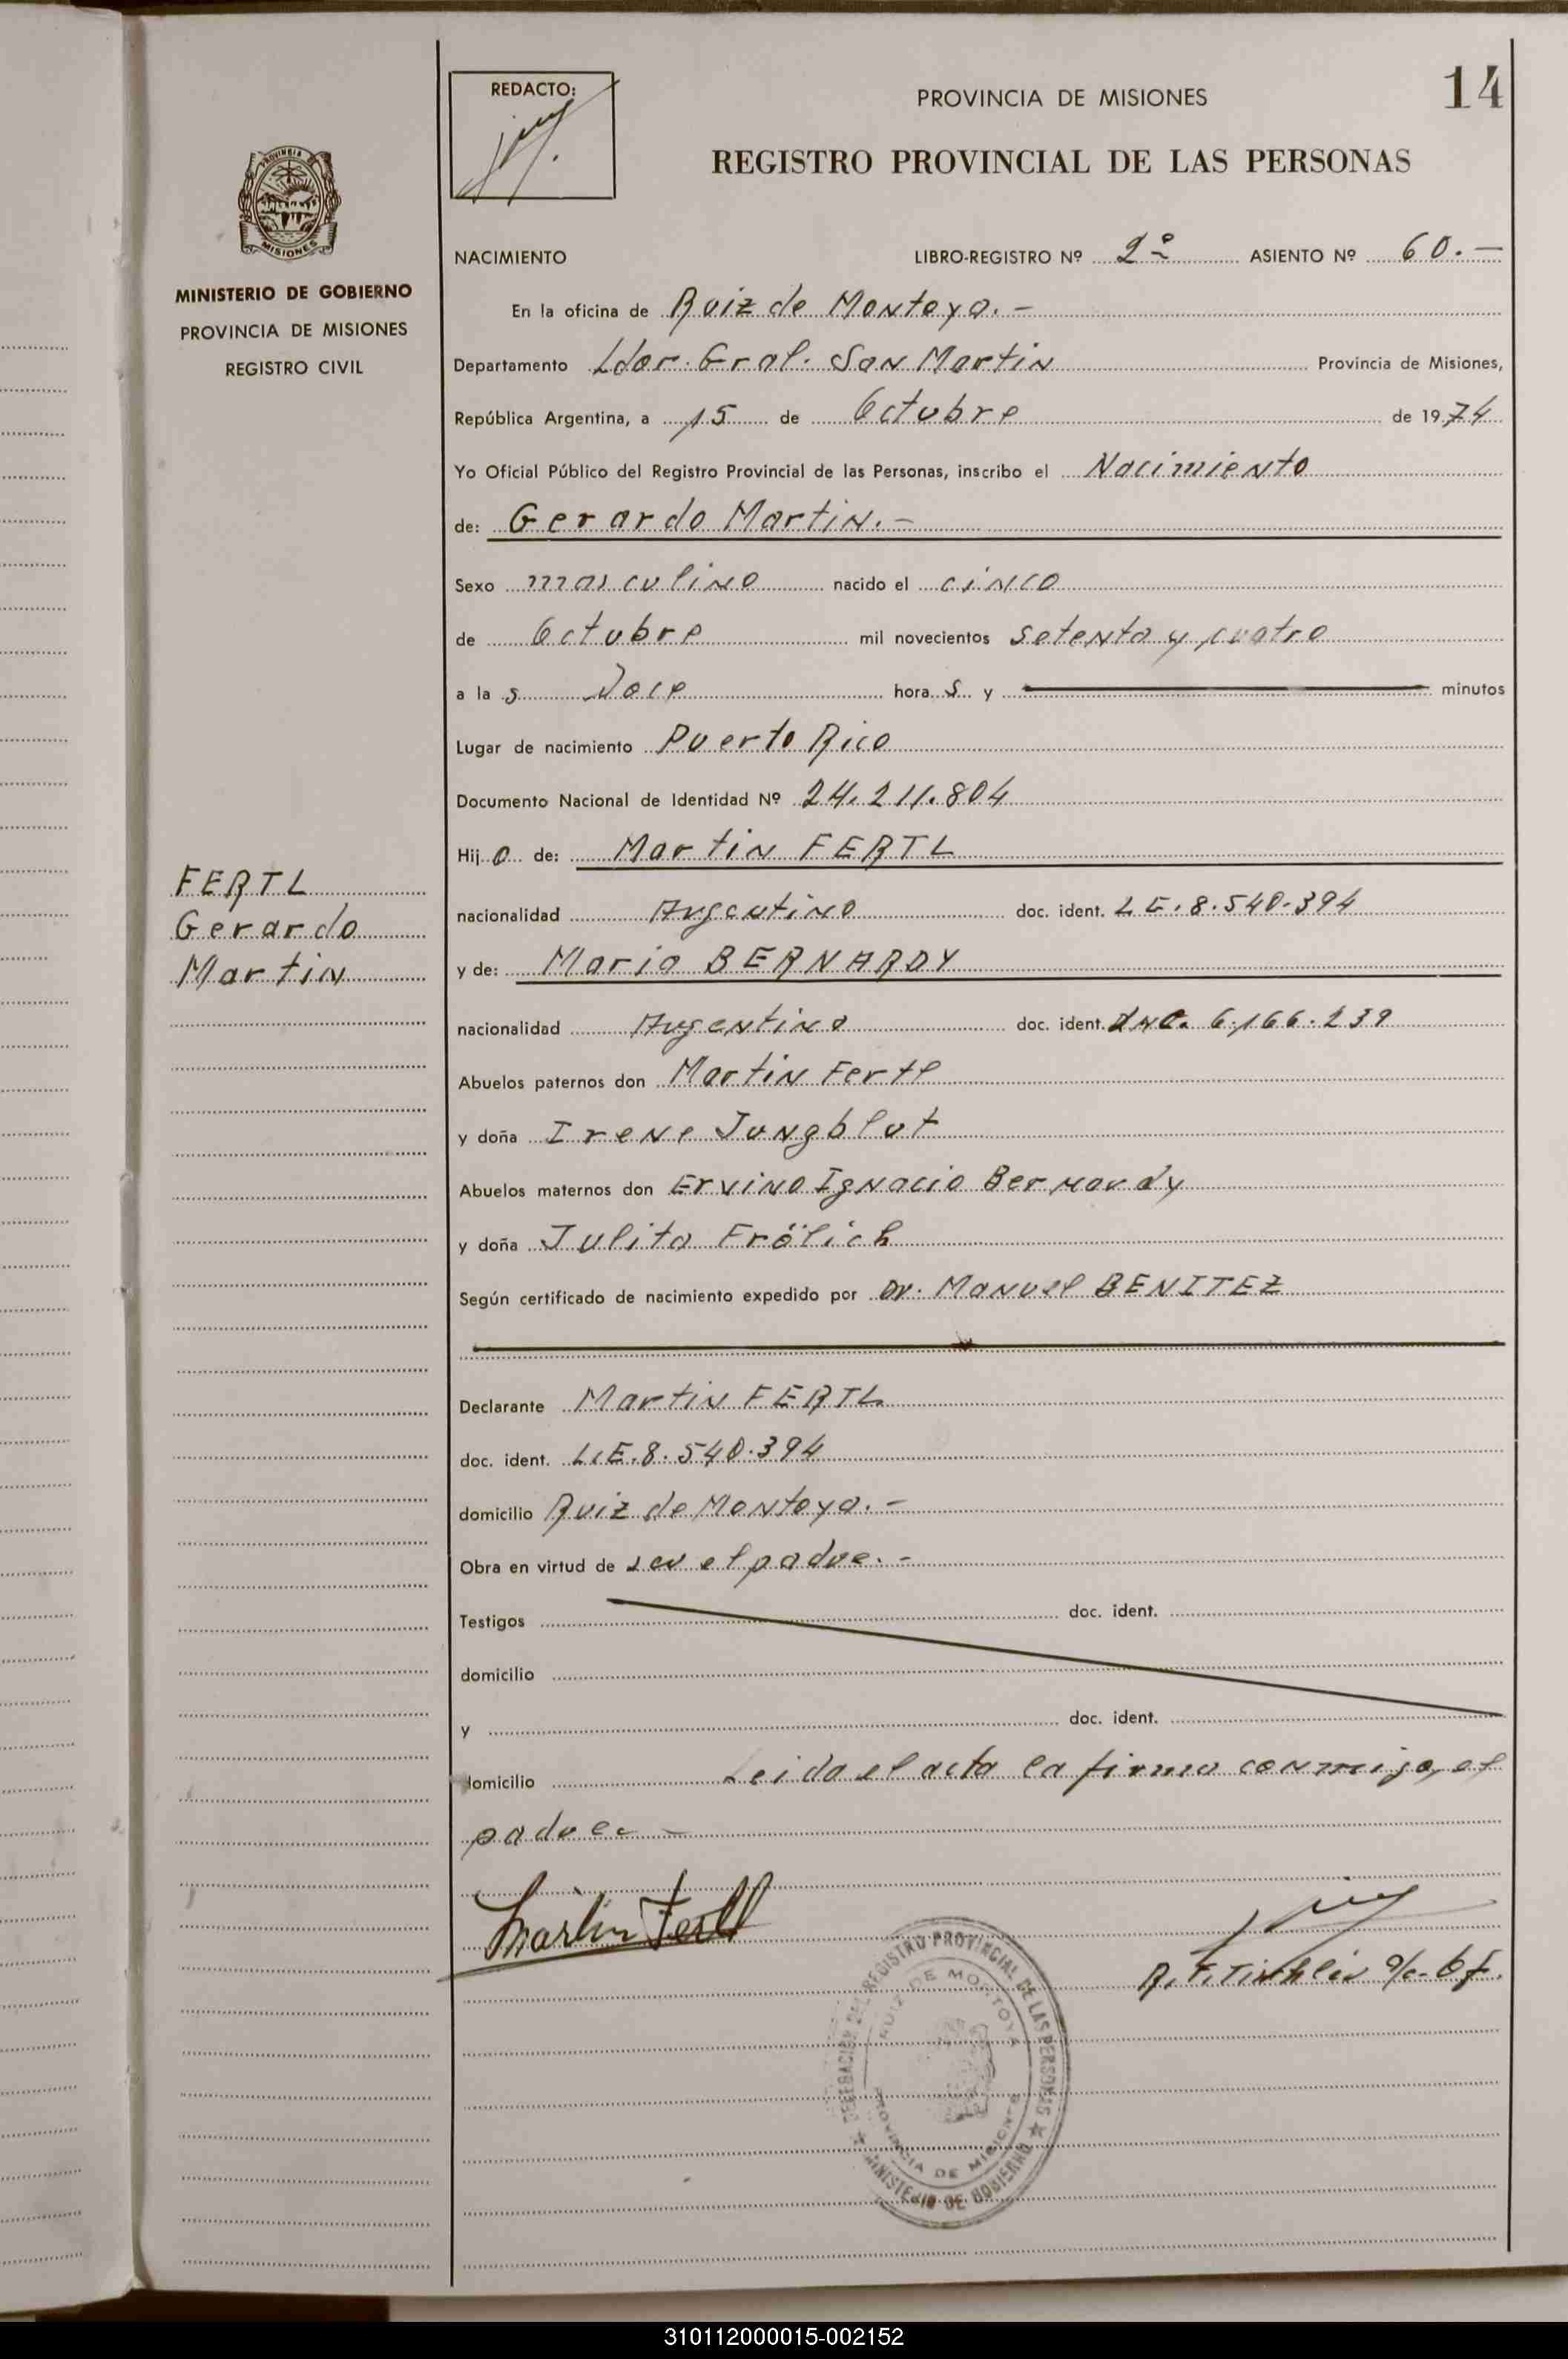 REDACTO:
PROVINCIA DE MISIONES
14
REGISTRO PROVINCIAL DE LAS PERSONAS
MISIONES
MINISTERIO DE GOBIERNO
PROVINCIA DE MISIONES
REGISTRO CIVIL
NACIMIENTO LIBRO-REGISTRO Nº 2º ASIENTO Nº 60.-
En la oficina de Ruiz de Montoya.-
Departamento Ldor. Gral. San Martin Provincia de Misiones,
República Argentina, a 15 de Octubre de 1974
Yo Oficial Público del Registro Provincial de las Personas, inscribo el Nacimiento
de: Gerardo Martin.-
Sexo masculino nacido el cinco
de Octubre mil novecientos setenta y cuatro
a las Doce horas y minutos
Lugar de nacimiento Puerto Rico
Documento Nacional de Identidad Nº 24.211.804
Hijo de: Martin FERTL
FERTL
Gerardo
Martin
nacionalidad Argentino doc. ident. L.E. 8.540.394
y de: Maria BERNARDY
nacionalidad Argentina doc. ident. 6.166.239
Abuelos paternos don Martin Fertl
y doña Irene Jungblut
Abuelos maternos don Ervino Ignacio Bernardy
y doña Julita Frölich
Según certificado de nacimiento expedido por Dr. Manuel BENITEZ
Declarante Martin FERTL
doc. ident. L.E. 8.540.394
domicilio Ruiz de Montoya.-
Obra en virtud de ser el padre.-
Testigos doc. ident.
domicilio
y doc. ident.
domicilio Leida el acta la firma conmigo, el
padre.-
Martin Fertl
DELEGACION DEL REGISTRO PROVINCIAL DE LAS PERSONAS
RUIZ DE MONTOYA
PROVINCIA DE MISIONES
MINISTERIO DE GOBIERNO
310112000015-002152